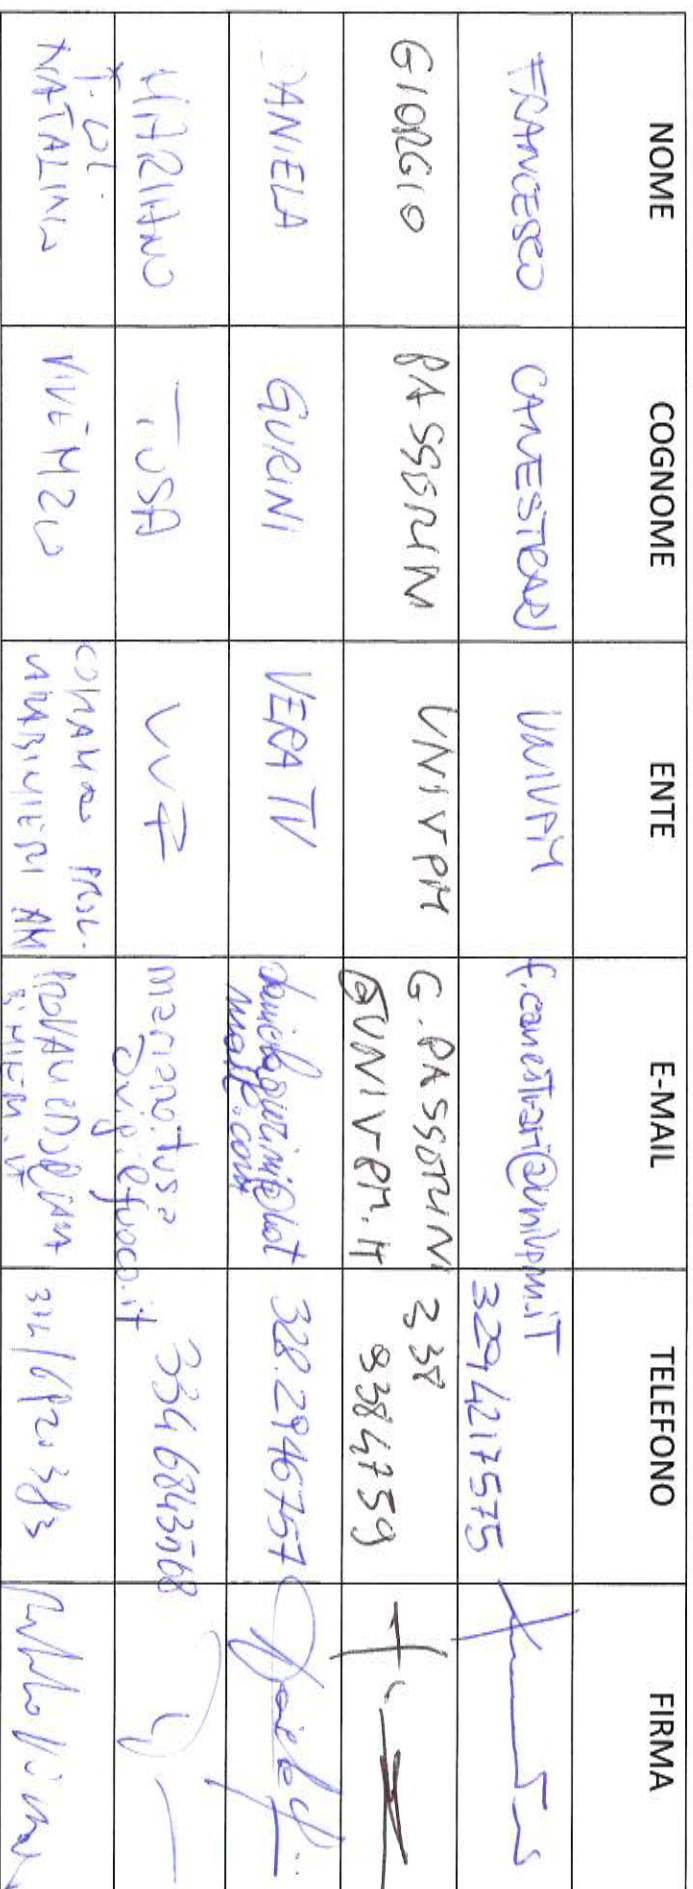 NOME COGNOME ENTE E-MAIL TELEFONO FIRMA
FRANCESCO CANESTRARI UNIVPM f.canestrari@univpm.it 3294217575
GIORGIO PASSERINI UNIVPM G.PASSERINI
@UNIVPM.it 338
9384759
DANIELA GURINI VERA TV danielagurini@hot
mail.com 328.2946757
MARIANO TUSA VVF mariano.tusa
@vigilfuoco.it 3346843568
NATALINO COMANDO PROV.
CARABINIERI AN